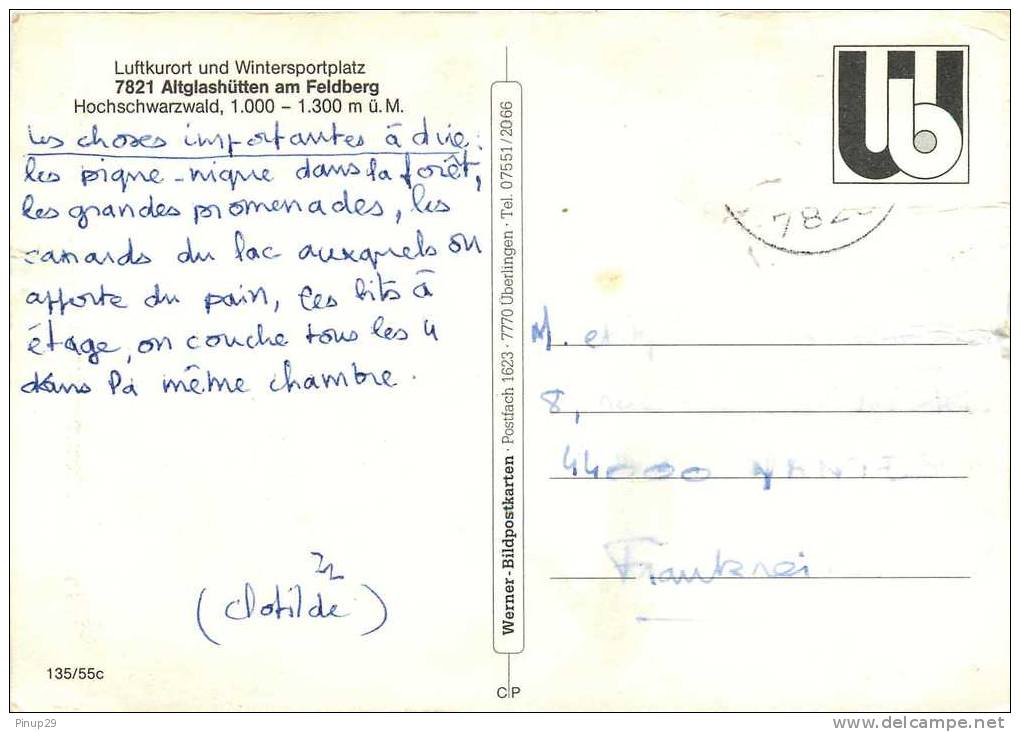 Luftkurort und Wintersportplatz
7821 Altglashütten am Feldberg
Hochschwarzwald, 1.000 – 1.300 m ü. M.
les choses importantes à dire :
les pique-nique dans la forêt,
les grandes promenades, les
canards du lac auxquels on
apporte du pain, les lits à
étage, on couche tous les 4
dans la même chambre.
(Clotilde)
135/55c
Werner-Bildpostkarten · Postfach 1623 · 7770 Überlingen · Tel. 07551/2066
C P
Wb
782
M. et
8,
44000 NANTES
Frankrei
Pinup29
www.delcampe.net